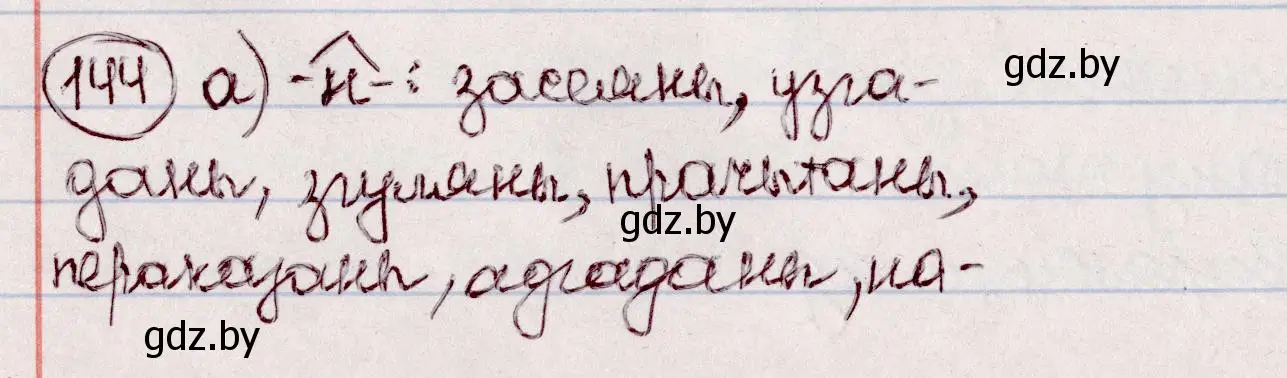 144 а) -н-: засеяны, узга-
даны, згуляны, прачытаны,
пераказаны, адгаданы, на-
gdz.by
gdz.by
gdz.by